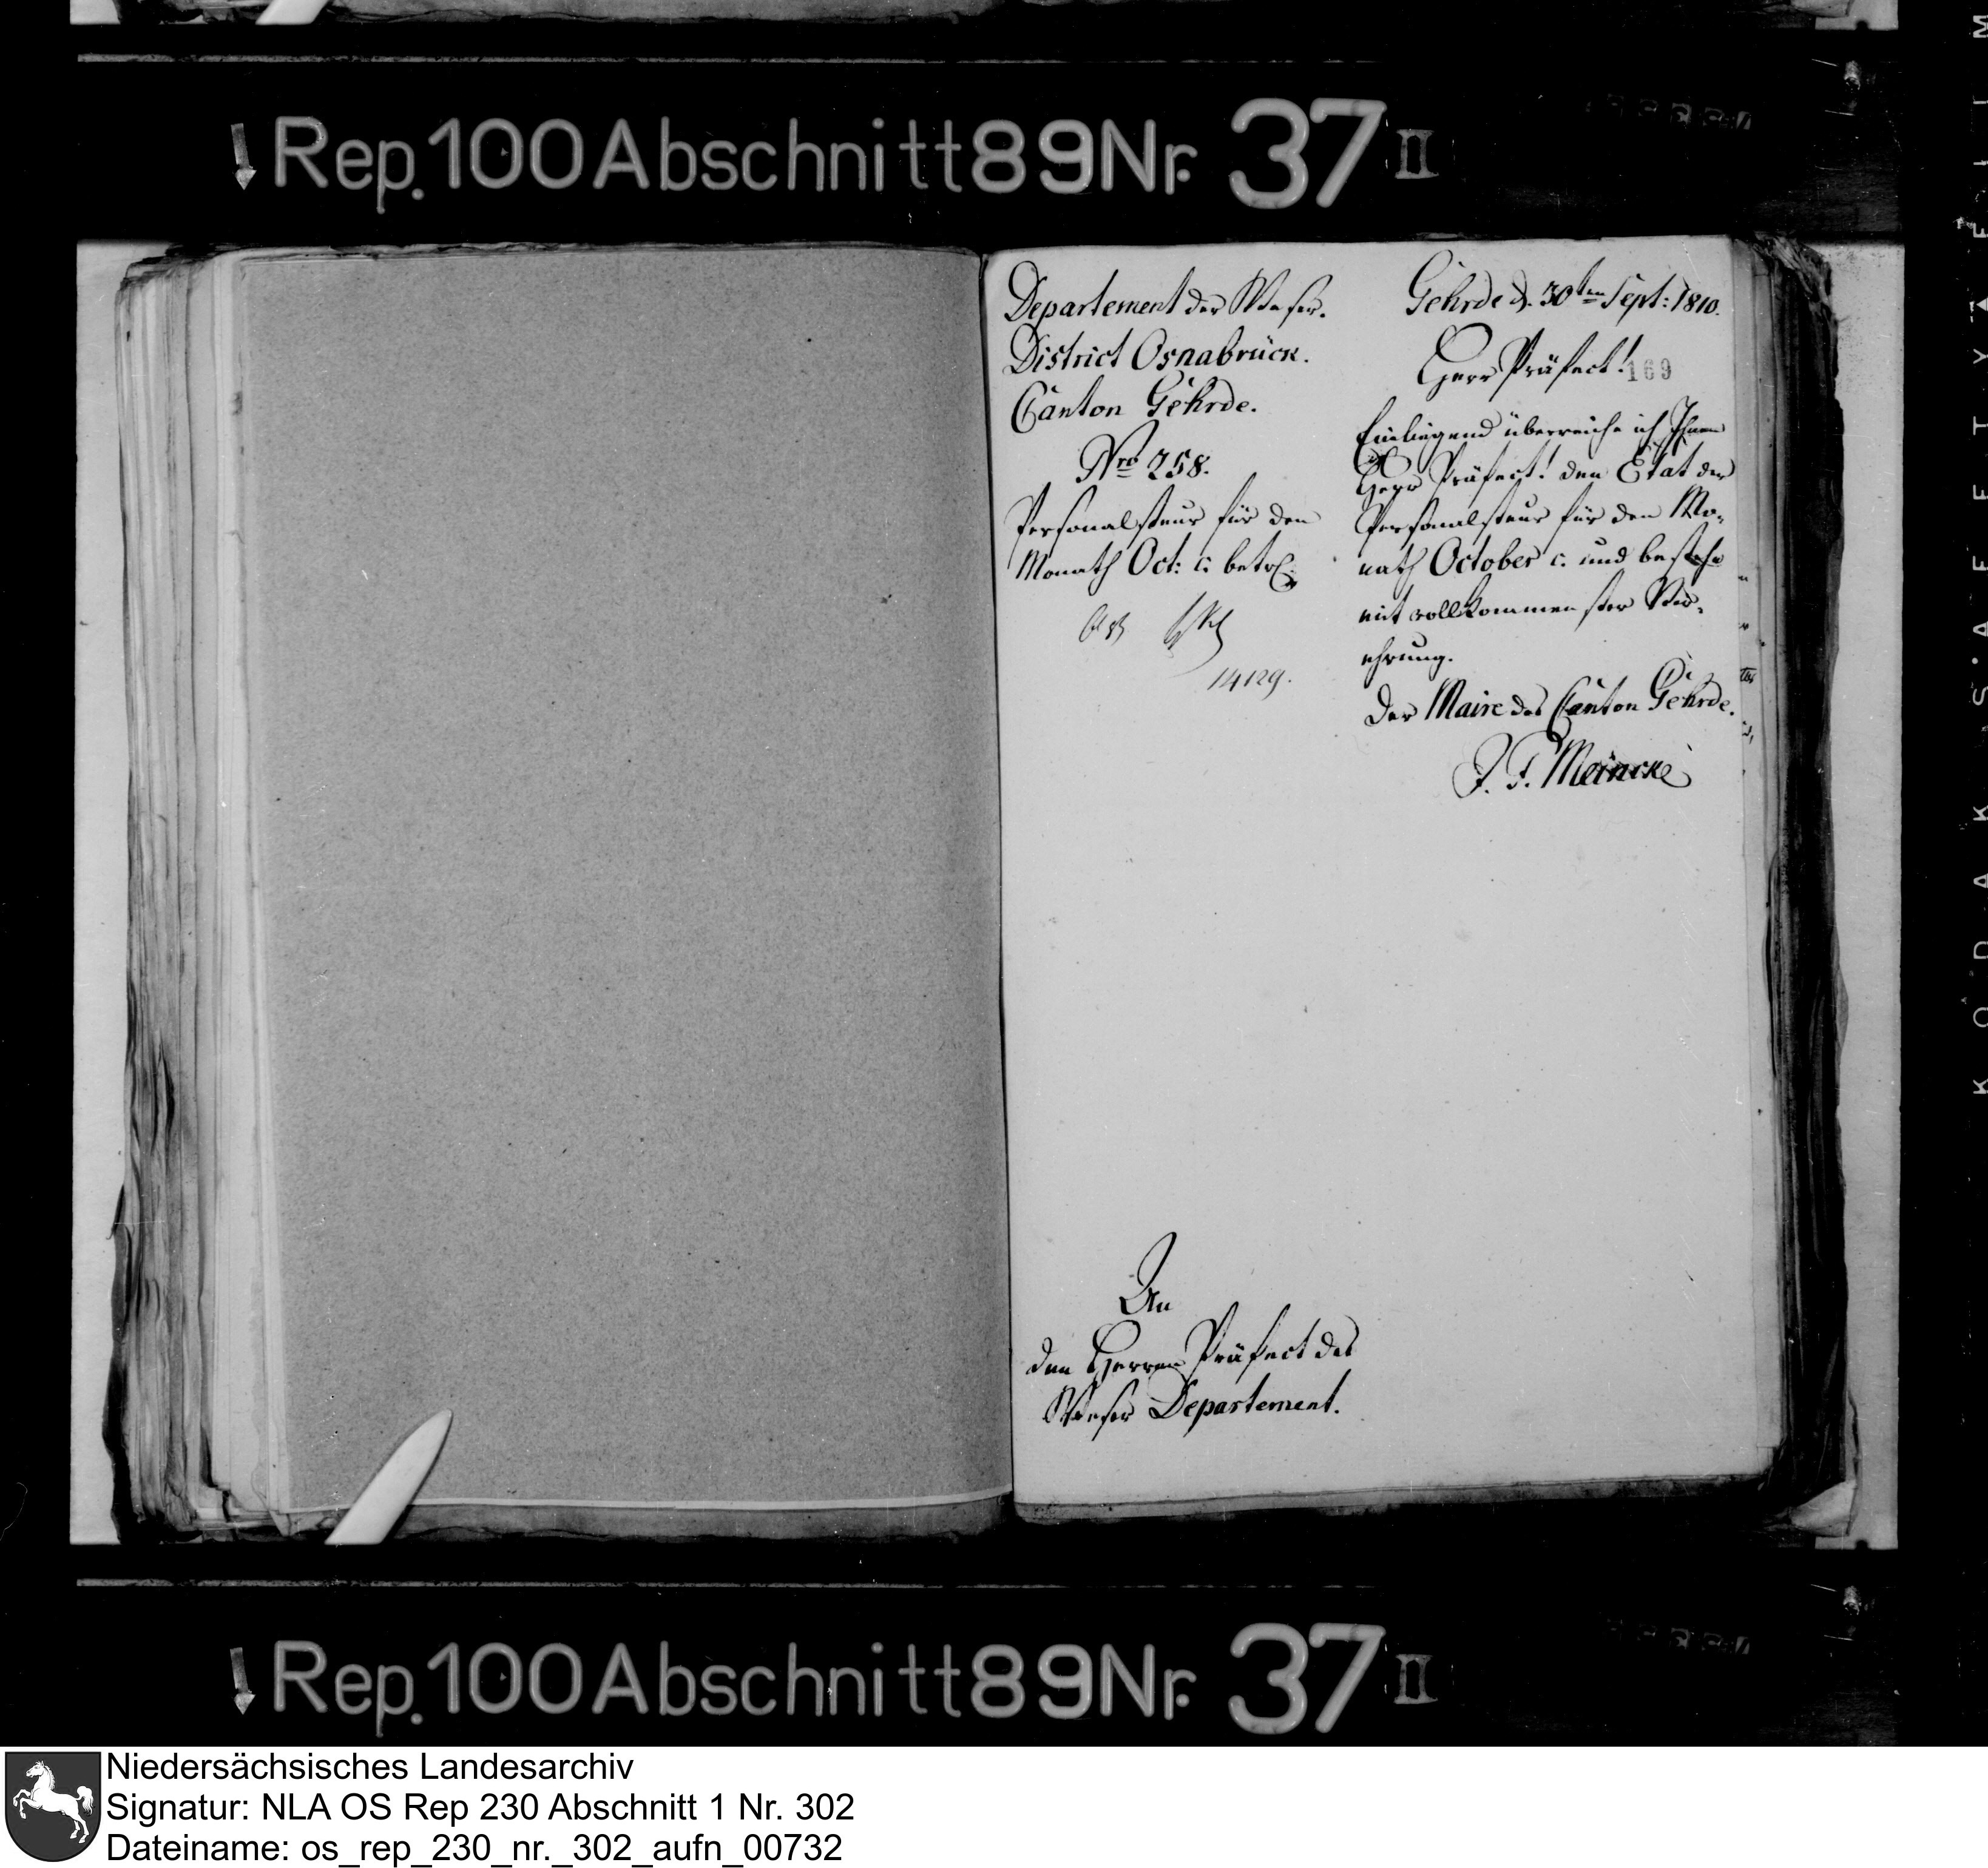 Rep. 100 Abschnitt 89 Nr. 37 II
Departement der Weser.
District Osnabrück.
Canton Gehrde.
Nro 258.
Personalsteur für den
Monath Oct: c. betr.
14129.
Gehrde d. 30ten Sept: 1810.
Herr Präfect!
169
Einliegend überreiche ich Ihnen
Herr Präfect! den Etat der
Personalsteur für den Mo-
nath October c. und bestehe
mit vollkommenster Ver-
ehrung.
Der Maire des Canton Gehrde.
J. F. Meincke
An
den Herren Präfect des
Weser Departement.
KODAK SAFETY
Rep. 100 Abschnitt 89 Nr. 37 II
Niedersächsisches Landesarchiv
Signatur: NLA OS Rep 230 Abschnitt 1 Nr. 302
Dateiname: os_rep_230_nr._302_aufn_00732